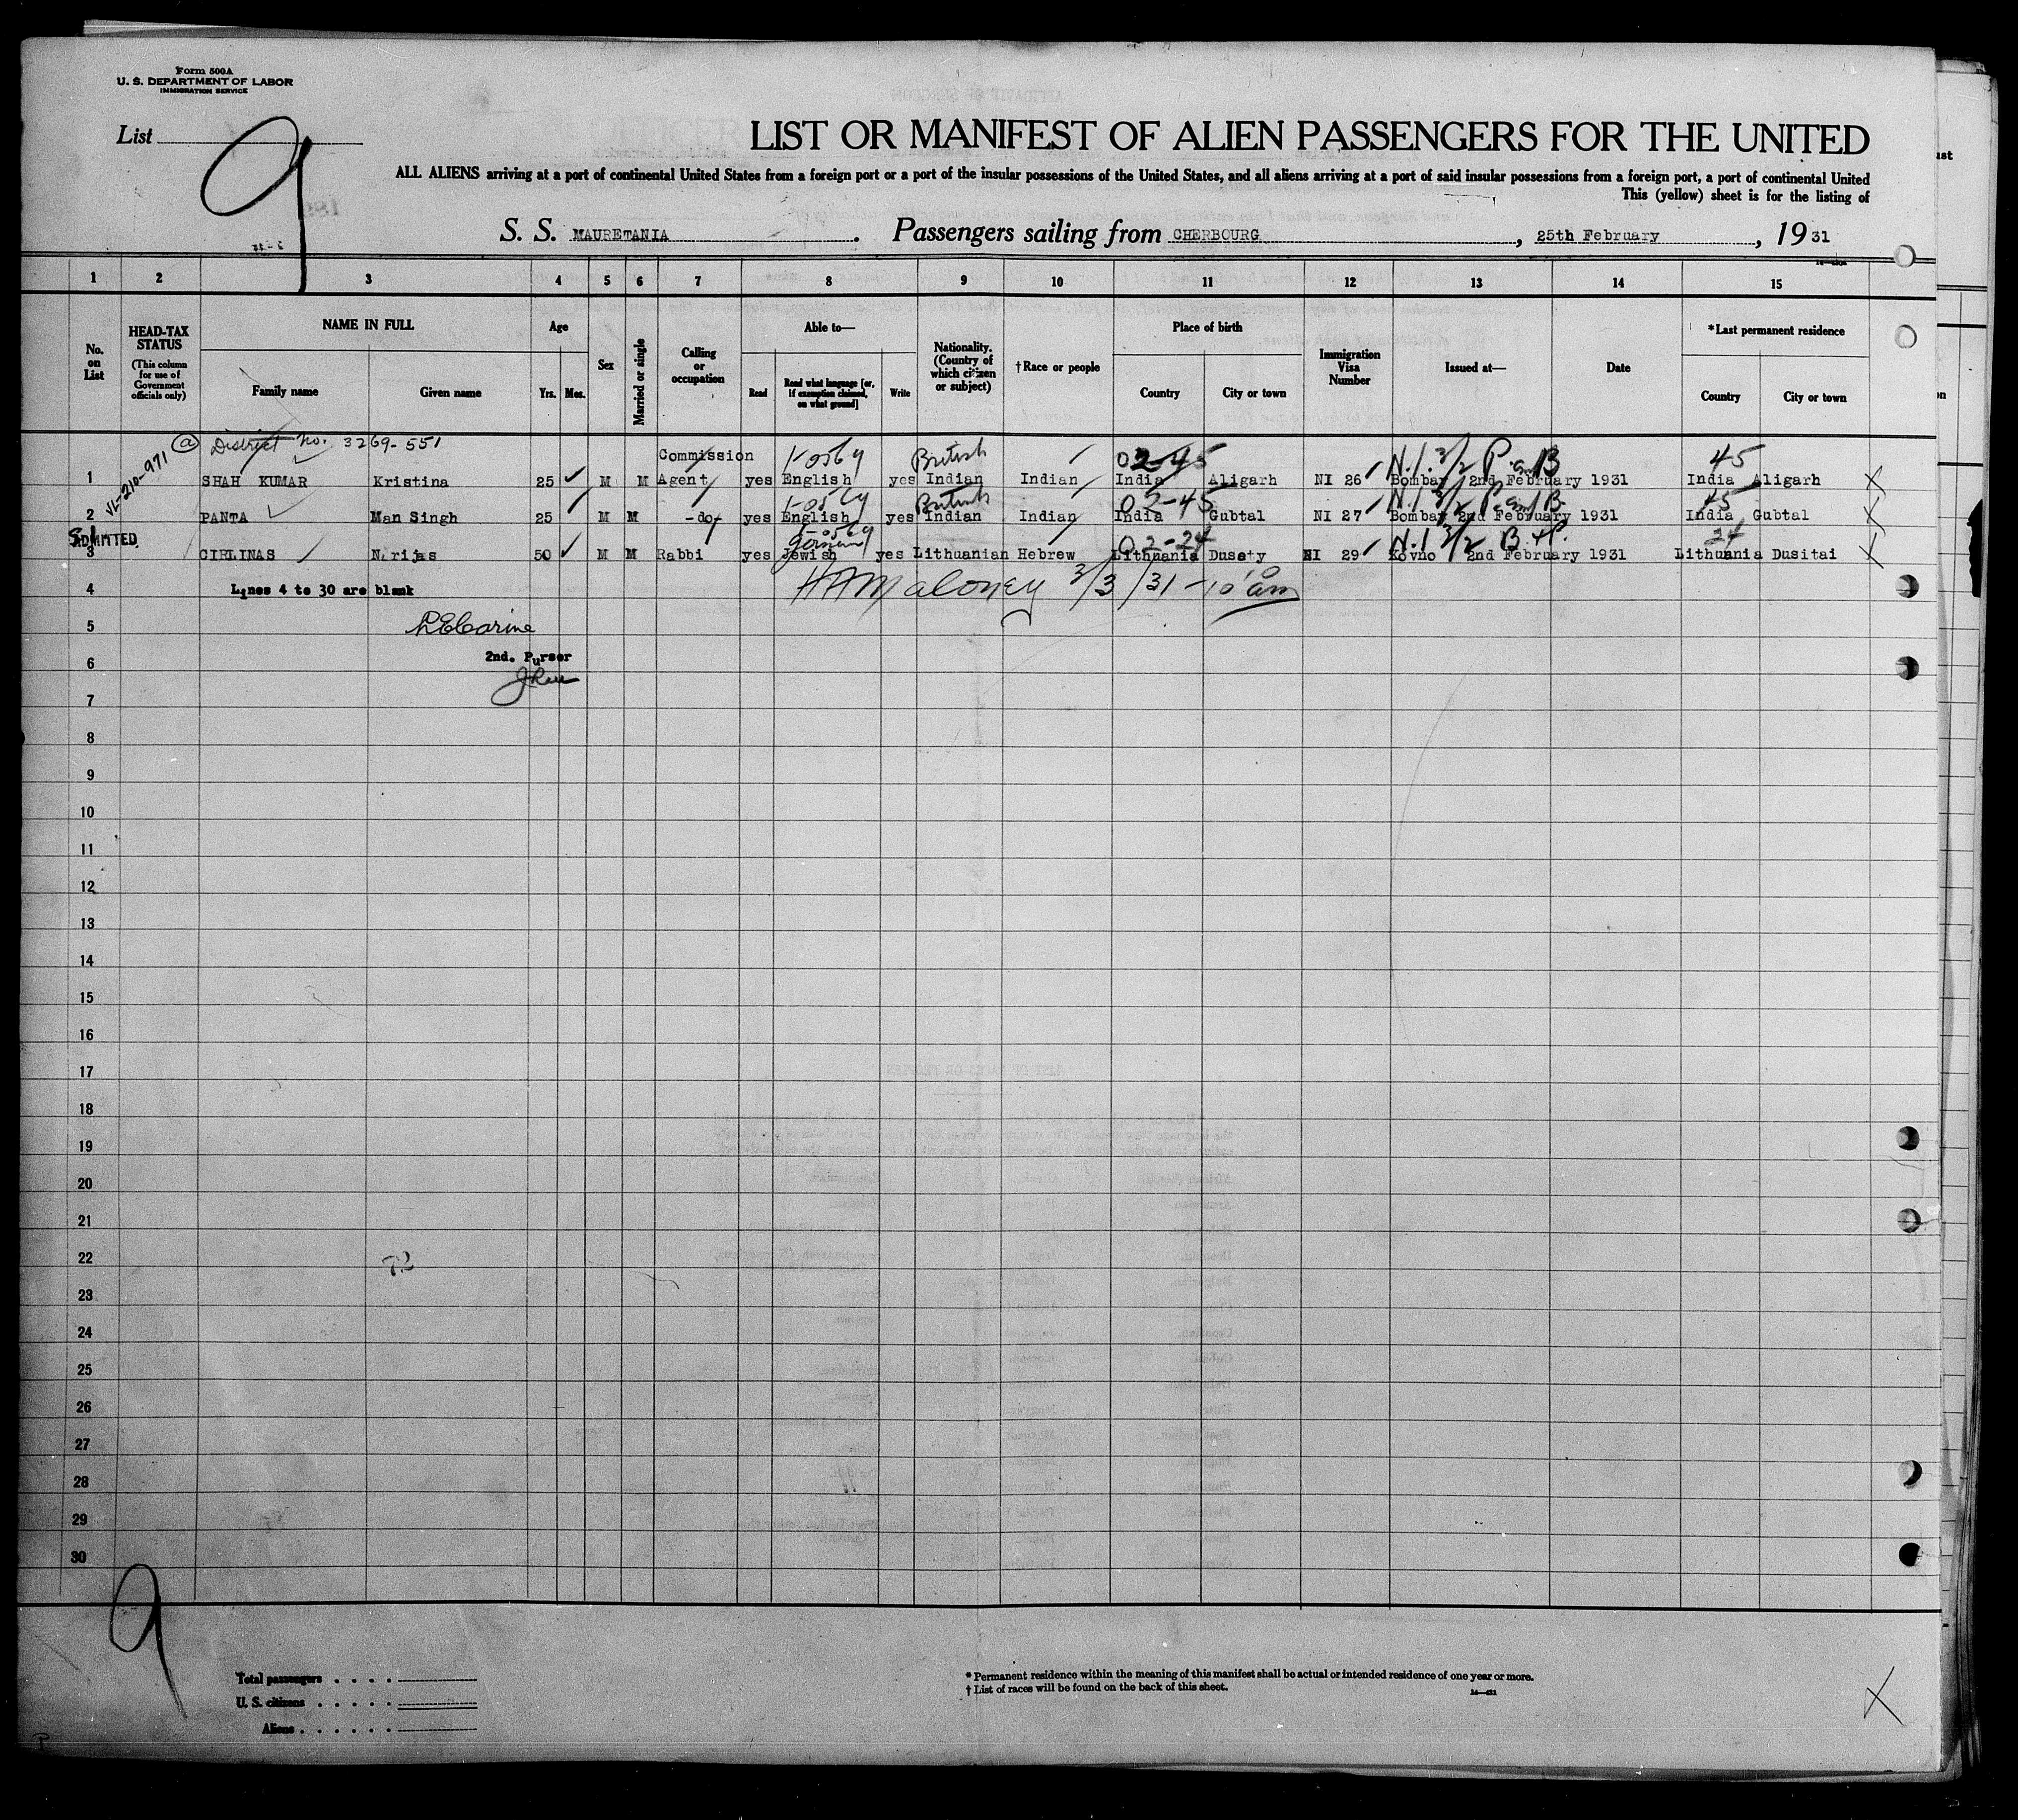 Form 500A
U. S. DEPARTMENT OF LABOR
IMMIGRATION SERVICE
List 9
LIST OR MANIFEST OF ALIEN PASSENGERS FOR THE UNITED
ALL ALIENS arriving at a port of continental United States from a foreign port or a port of the insular possessions of the United States, and all aliens arriving at a port of said insular possessions from a foreign port, a port of continental United
This (yellow) sheet is for the listing of
S. S. MAURETANIA. Passengers sailing from CHERBOURG, 25th February, 1931
1 2 3 4 5 6 7 8 9 10 11 12 13 14 15
No. on List
HEAD-TAX STATUS
(This column for use of Government officials only)
NAME IN FULL
Family name Given name
Age
Yrs. Mos.
Sex
Married or single
Calling or occupation
Able to—
Read Read what language [or, if exemption claimed, on what ground] Write
Nationality. (Country of which citizen or subject)
†Race or people
Place of birth
Country City or town
Immigration Visa Number
Issued at—
Date
*Last permanent residence
Country City or town
a District No. 3269-551
VL-210-971
Commission 1-0569 British 02-45 N.I. 3/2 P and B 45
1 SHAH KUMAR Kristina 25 M M Agent yes English yes Indian Indian India Aligarh NI 26 Bombay 2nd February 1931 India Aligarh
1-0569 British 02-45 N.I. 3/2 P and B 45
2 PANTA Man Singh 25 M M -do- yes English yes Indian Indian India Gubtal NI 27 Bombay 2nd February 1931 India Gubtal
S.I. ADMITTED
5-0569 German 02-24 N.I 3/2 B 24
3 CIRLINAS Narijas 50 M M Rabbi yes Jewish yes Lithuanian Hebrew Lithuania Dusety NI 29 Kovno 2nd February 1931 Lithuania Dusitai
4 Lines 4 to 30 are blank
HA Maloney 3/3/31 - 10 10 am
5
2nd. Purser
6
7
8
9
10
11
12
13
14
15
16
17
18
19
20
21
22
23
24
25
26
27
28
29
30
9
Total passengers
U. S. citizens
Aliens
* Permanent residence within the meaning of this manifest shall be actual or intended residence of one year or more.
† List of races will be found on the back of this sheet.